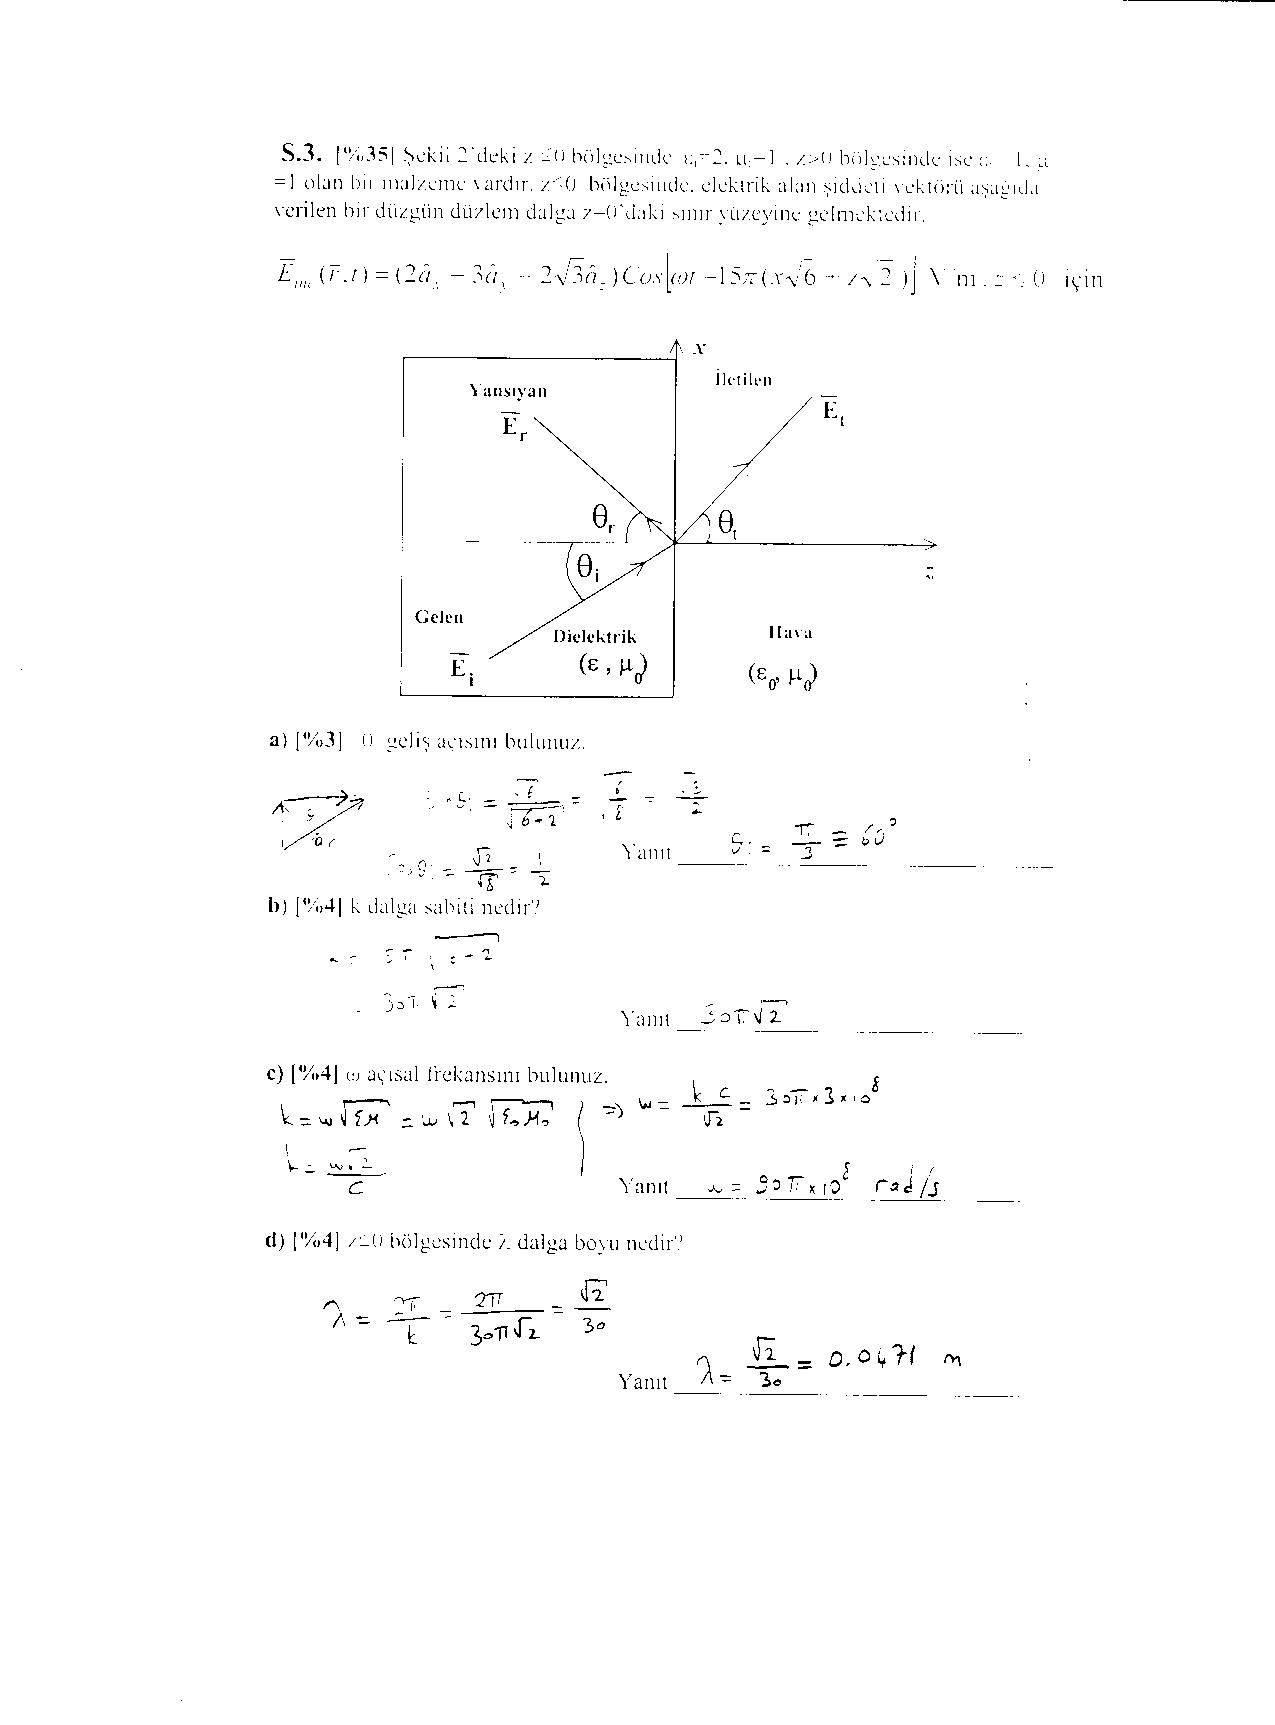 S.3. [%35] Şekil 2'deki z ≤0 bölgesinde εᵣ=2, μᵣ=1 , z>0 bölgesinde ise 1, μ
=1 olan bir malzeme vardır. z≤0 bölgesinde, elektrik alan şiddeti vektörü aşağıda
verilen bir düzgün düzlem dalga z=0'daki sınır yüzeyine gelmektedir.
(r̅,t) = (2â - 3â - 2√3â )Cos[ωt -15π(x√6 + z√2 )] V/m , z ≤ 0 için
x
Yansıyan
İletilen
E̅r
E̅t
θr
θt
θi
z
Gelen
Dielektrik
Hava
E̅i
(ε , μ0)
(ε0, μ0)
a) [%3] θ geliş açısını bulunuz.
= √6 / √6+2 = = √3 / 2
Cosθi = √2 / √8 = 1 / 2
Yanıt θi = π/3 ≡ 60°
b) [%4] k dalga sabiti nedir?
= 30π √2
Yanıt 30π√2
c) [%4] ω açısal frekansını bulunuz.
k = w√εμ = w √2 √ε₀μ₀ } ⇒ w = k c / √2 = 30π × 3 × 10⁸
k = w√2 / c
Yanıt w = 90π × 10⁸ rad/s
d) [%4] z≤0 bölgesinde λ dalga boyu nedir?
λ = 2π / k = 2π / 30π√2 = √2 / 30
Yanıt λ = √2 / 30 = 0.0471 m